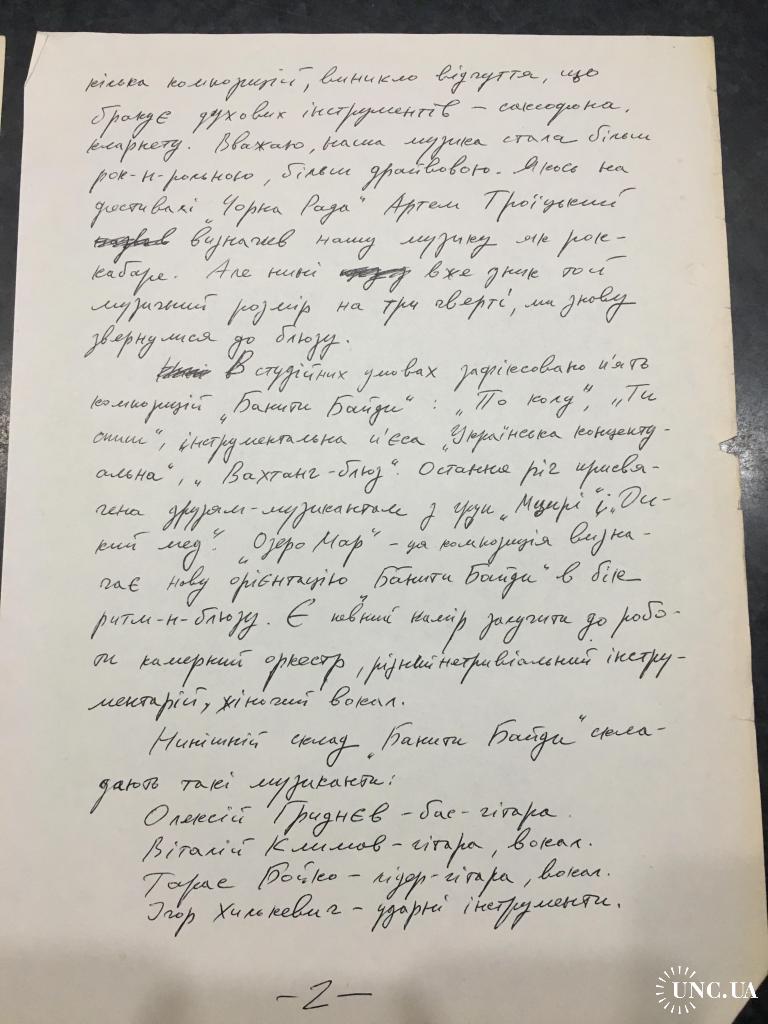 кілька композицій, виникло відчуття, що
бракує духових інструментів – саксофона,
кларнету. Вважаю, наша музика стала більш
рок-н-рольною, більш драйвовою. Якось на
фестивалі „Чорна Рада" Артем Троїцький
визначив нашу музику як рок-
кабаре. Але нині вже зник той
музичний розмір на три чверті, ми знову
звернулися до блюзу.
В студійних умовах зафіксовано п'ять
композицій „Банити Байди": „По колу", „Ти
", інструментальна п'єса „Українська концепту-
альна", „Вахтанг-блюз". Остання річ присвя-
чена друзям-музикантам з груп „Мцирі" і „Ди-
кий мед". „Озеро Мар" – ця композиція визна-
чає нову орієнтацію „Банити Байди" в бік
ритм-н-блюзу. Є певний намір залучити до робо-
ти камерний оркестр, різний нетривіальний інстру-
ментарій, жіночий вокал.
Нинішній склад „Банити Байди" скла-
дають такі музиканти:
Олексій Гриднєв – бас-гітара.
Віталій Климов – гітара, вокал.
Тарас Бойко – лідер-гітара, вокал.
Ігор Хилькевич – ударні інструменти.
– 2 –
UNC.UA